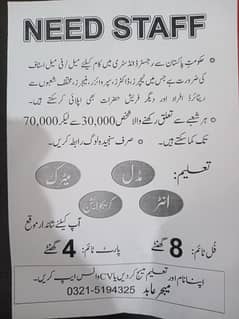 NEED STAFF
حکومتِ پاکستان سے رجسٹرڈ انڈسٹری میں کام کیلئے میل/فی میل اسٹاف
کی ضرورت ہے جس میں ٹیچرز، ڈاکٹرز، سپروائزر، منیجرز، مختلف شعبوں سے
ریٹائرڈ افراد اور دیگر فریش حضرات بھی اپلائی کر سکتے ہیں۔
ہر شعبے سے تعلق رکھنے والا شخص 30,000 سے لیکر 70,000
تک کما سکتے ہیں۔ صرف سنجیدہ لوگ رابطہ کریں۔
تعلیم: مڈل میٹرک
انٹر گریجوایشن
آپ کیلئے شاندار موقع
فل ٹائم: 8 گھنٹے پارٹ ٹائم: 4 گھنٹے
اپنا نام اور تعلیم میسج کر دیں یا CV واٹس ایپ کریں۔
میجر عابد 0321-5194325